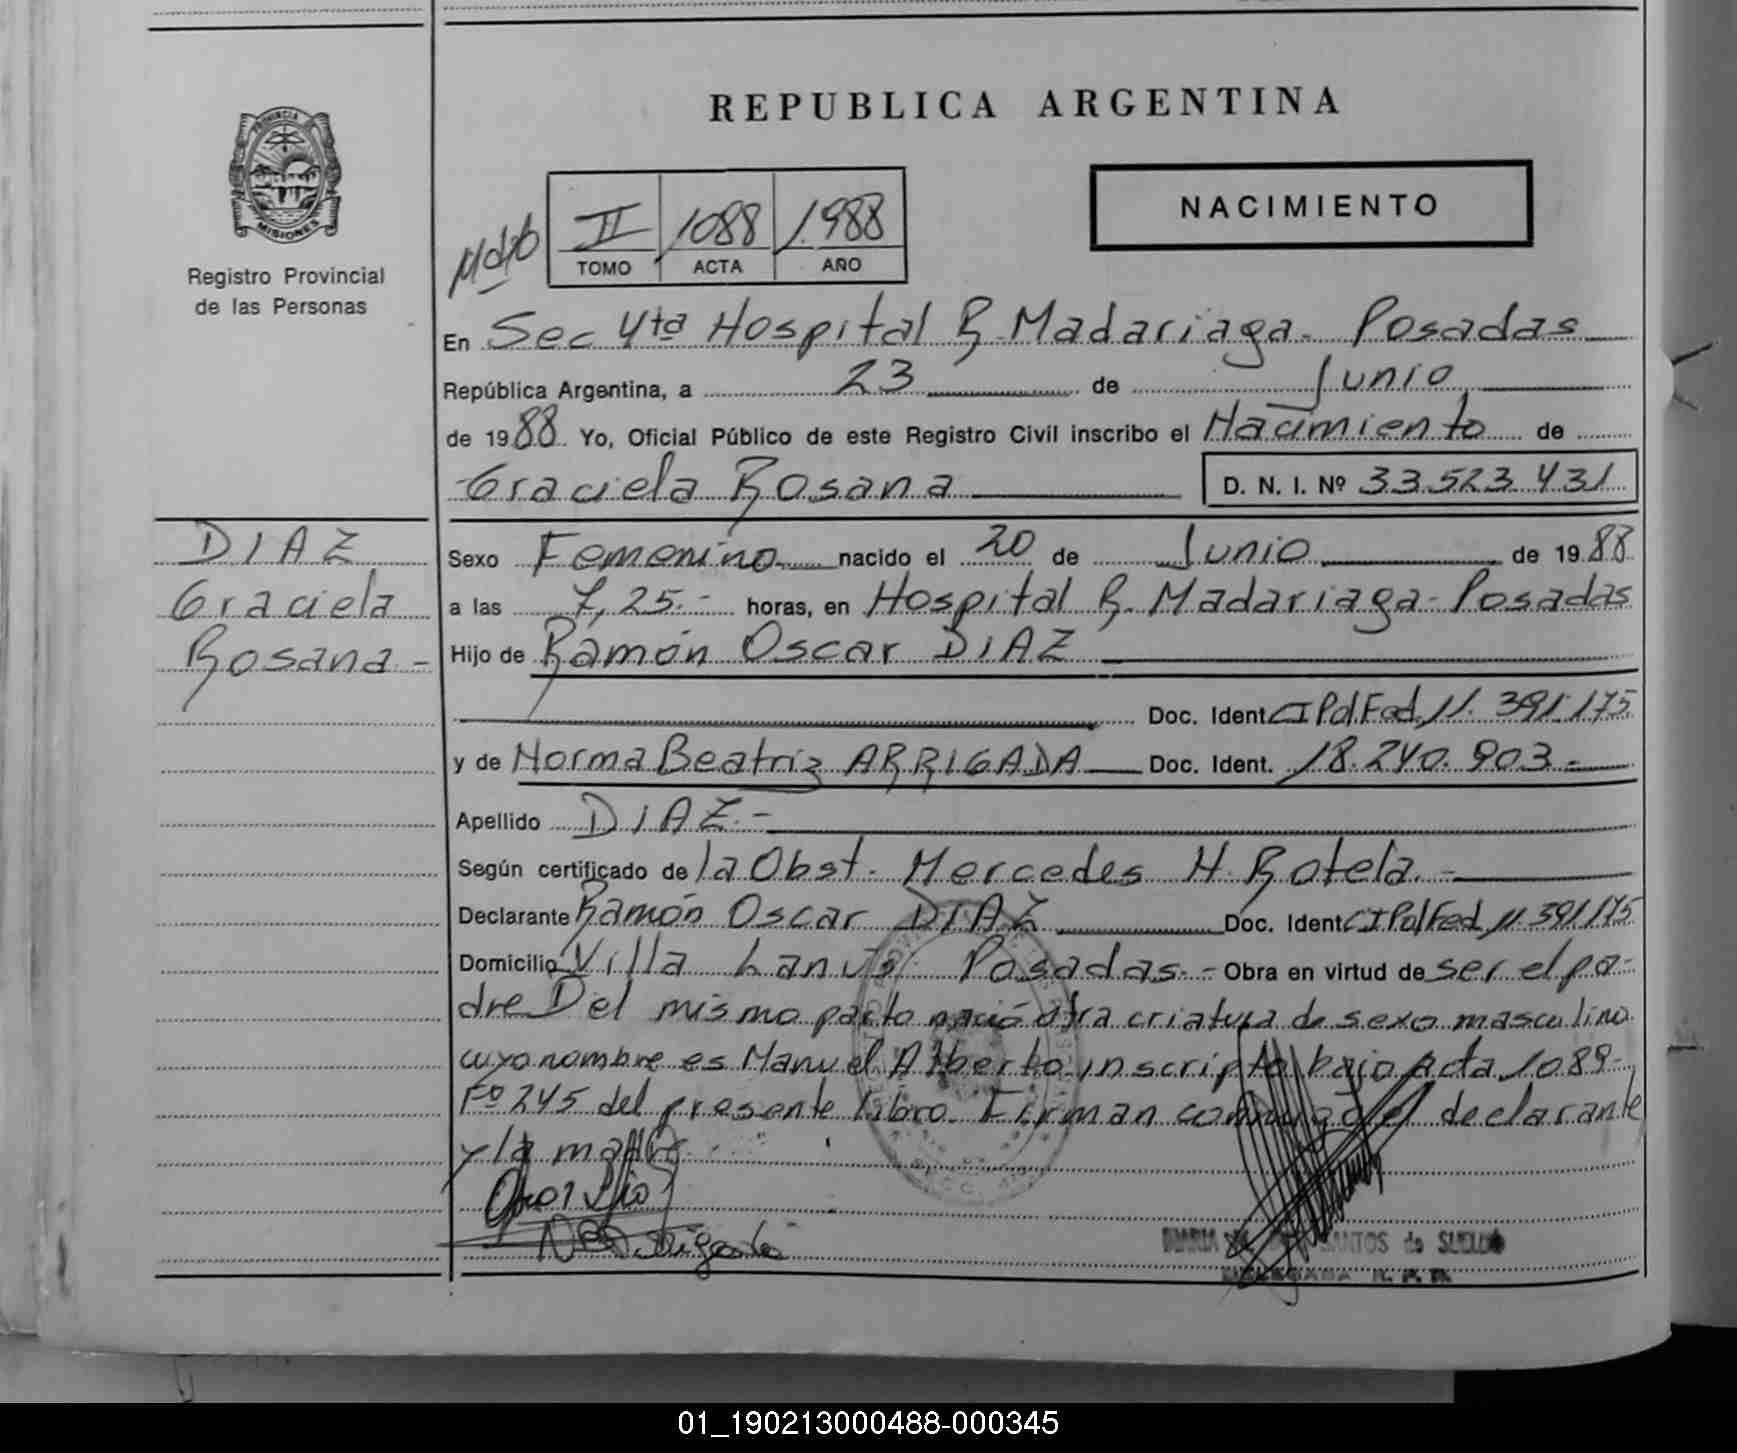 REPUBLICA ARGENTINA
PROVINCIA
MISIONES
Registro Provincial
de las Personas
NACIMIENTO
II 1088 1988
TOMO ACTA AÑO
En Sec 4ta Hospital R. Madariaga - Posadas
República Argentina, a 23 de Junio
de 1988 Yo, Oficial Público de este Registro Civil inscribo el Nacimiento de
Graciela Rosana D. N. I. Nº 33.523.431
DIAZ
Graciela
Rosana -
Sexo Femenino nacido el 20 de Junio de 1988
a las 7,25.- horas, en Hospital R. Madariaga - Posadas
Hijo de Ramón Oscar DIAZ
Doc. Ident CI Pol Fed 11.391.175
y de Norma Beatriz ARRIGADA Doc. Ident. 18.240.903.-
Apellido DIAZ.-
Según certificado de la Obst. Mercedes N. Rotela.-
Declarante Ramón Oscar DIAZ Doc. Ident CI Pol Fed 11.391.175
Domicilio Villa Lanús Posadas.- Obra en virtud de ser el pa-
dre Del mismo parto nació otra criatura de sexo masculino
cuyo nombre es Manuel Alberto inscripto bajo Acta 1089-
Fº 245 del presente libro. Firman conmigo el declarante
y la madre.
SANTOS de
01_190213000488-000345